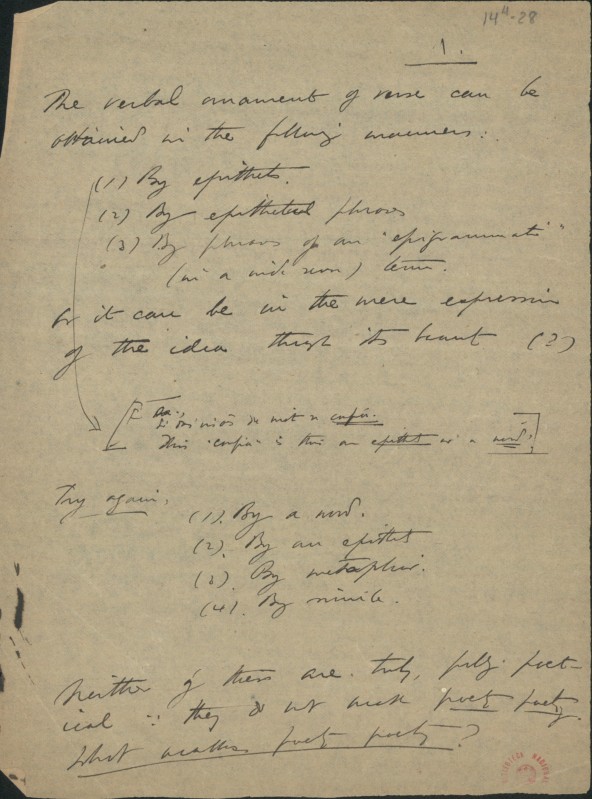 14⁴-28
1.
The verbal ornament of verse can be
obtained in the following manners:
(1) By epithets.
(2) By epithetical phrases
(3) By phrases of an "epigrammatic"
(in a wide sense) term.
or it can be in the mere expression
of the idea through its beauty (?)
de not a confia.
This "confia" is this an epithet or a word?
Try again:
(1). By a word.
(2). By an epithet
(3). By metaphor.
(4). By simile.
Neither of these are truly, fully poet-
ical ∵ they do not make poetry poetry.
What makes poetry poetry?
BIBLIOTECA NACIONAL